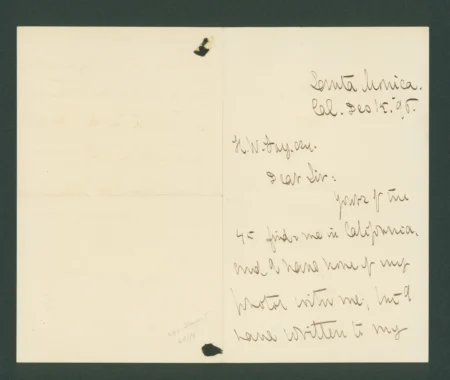 Santa Monica.
Cal. Dec 15. '95.
Dear Sir:
Yours of the
finds me in California.
and I have none of my
photos with me, but I
have written to my